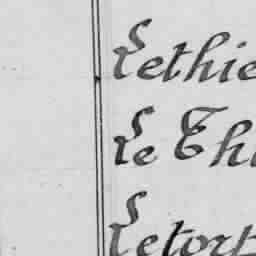 Lethie
Le Th
Letort